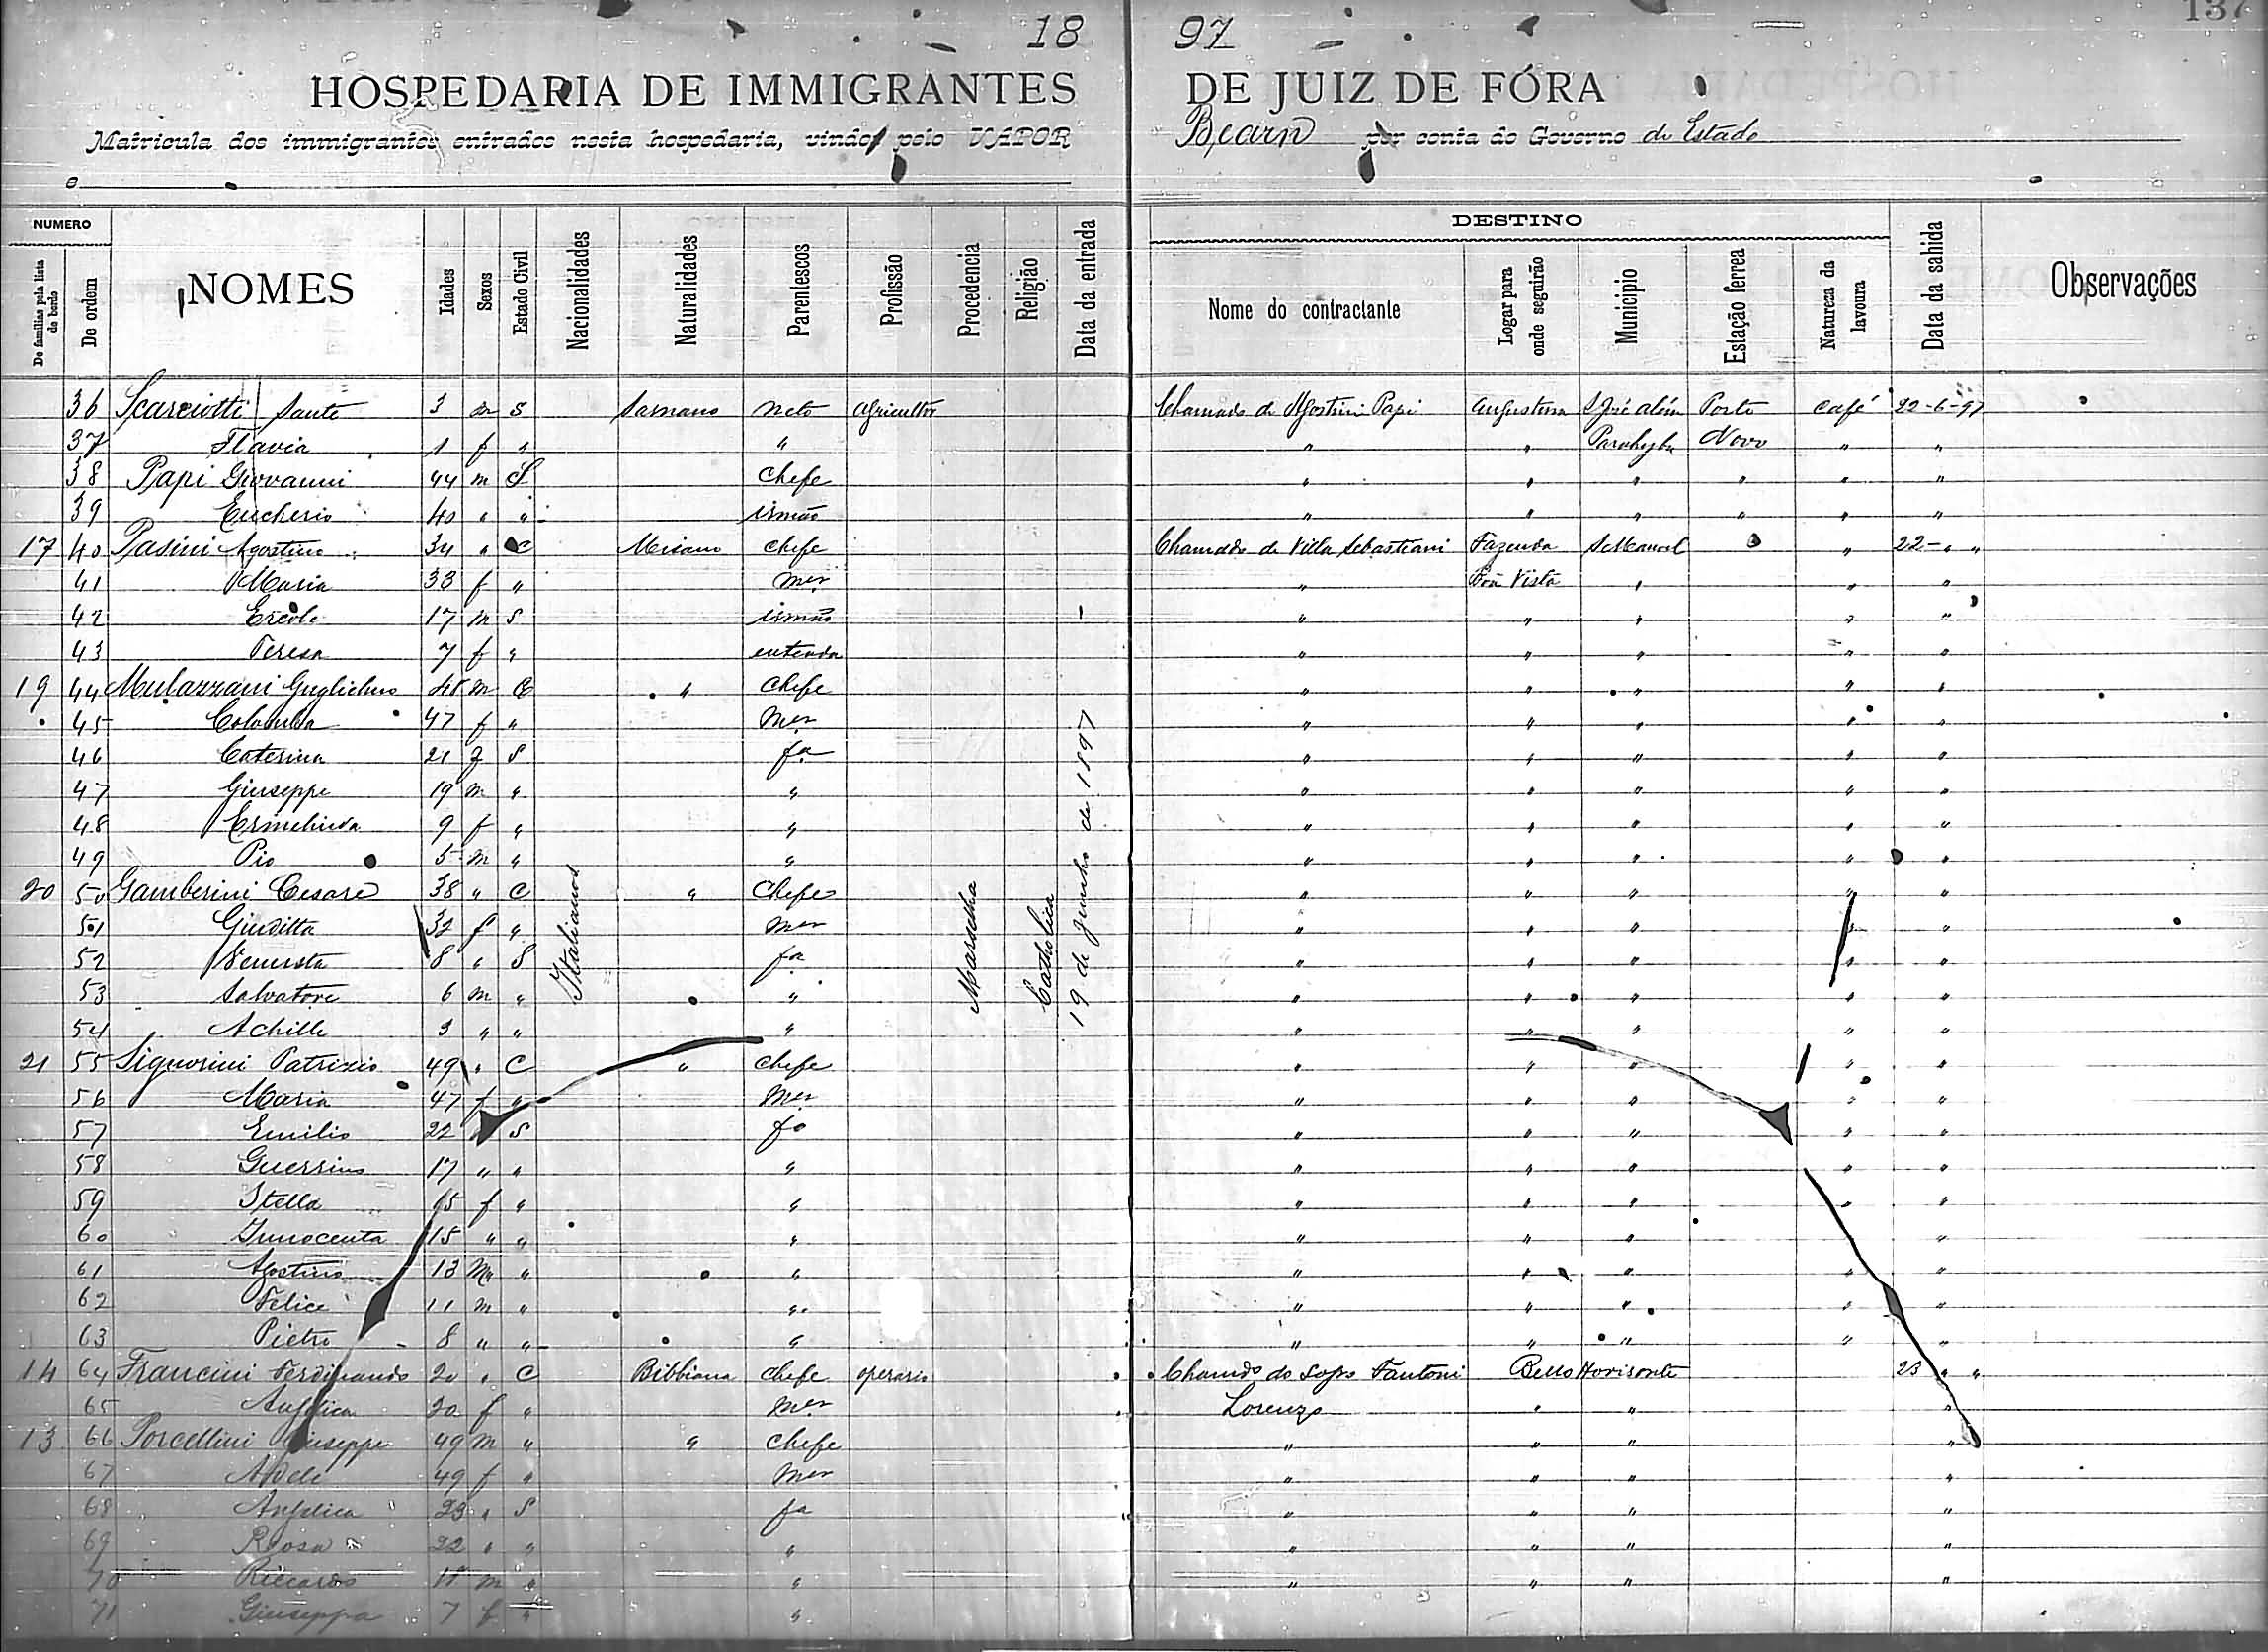 137
18 97
HOSPEDARIA DE IMMIGRANTES DE JUIZ DE FÓRA
Matricula dos immigrantes entrados nesta hospedaria, vindos pelo VAPOR Béarn por conta do Governo do Estado
e
NUMERO DESTINO
De familias pela lista de bordo De ordem NOMES Idades Sexos Estado Civil Nacionalidades Naturalidades Parentescos Profissão Procedencia Religião Data da entrada Nome do contractante Logar para onde seguirão Municipio Estação ferrea Natureza da lavoura Data da sahida Observações
36 Scarciotti Sante 3 m S Sarnano neto agricultor Chamado de Agostini Papi Augustura S José além Porto café 22-6-97
37 Flavia 1 f " " " " Parahyba Novo " "
38 Papi Giovanni 44 m S Chefe " " " " " "
39 Eucherio 40 " " irmão " " " " " "
17 40 Pasini Agostino 34 " C Misano chefe Chamado de Villa Sebastiani Fazenda S Manoel " 22- " "
41 Maria 33 f " mer " Bôa Vista " " "
42 Ercole 17 m S irmão " " " " "
43 Teresa 7 f " enteada " " " " "
19 44 Mulazzani Guglielmo 48 m C " Chefe " " " " "
45 Colomba 47 f " mer " " " " "
46 Caterina 21 f S fa " " " " "
47 Giuseppe 19 m " " " " " " "
48 Ermelinda 9 f " " " " " " "
49 Pio 5 m " " " " " " "
20 50 Gamberini Cesare 38 " C " Chefe " " " " "
51 Giuditta 32 f " mer " " " " "
52 8 " S fa " " " " "
53 Salvatore 6 m " " " " " " "
54 Achille 3 " " " " " " " "
21 55 Signorini Patrizio 49 " C " chefe " " " " "
56 Maria 47 f " mer " " " " "
57 Emilio 22 S fo " " " " "
58 Guerrino 17 " " " " " " " "
59 Stella 15 f " " " " " " "
60 Innocenta 15 " " " " " " "
61 Agostino 13 m " " " " " " "
62 Felice 11 m " " " " " " "
63 Pietro 8 " " " " " " " "
14 64 Francini Ferdinando 20 " C Bibbiana chefe operario Chamdo do sogro Fantoni Bello Horisonte 23 " "
65 Angelica 20 f " mer Lorenzo " " "
13 66 Porcellini Giuseppe 49 m " " chefe " " " "
67 Adele 49 f " mer " " " "
68 Angelica 23 " S fa " " " "
69 Rosa 22 " " " " " " "
70 Riccardo m " " " " " "
71 Giuseppa 7 f " "
Italianos
Marselha
Catholica
19 de Junho de 1897